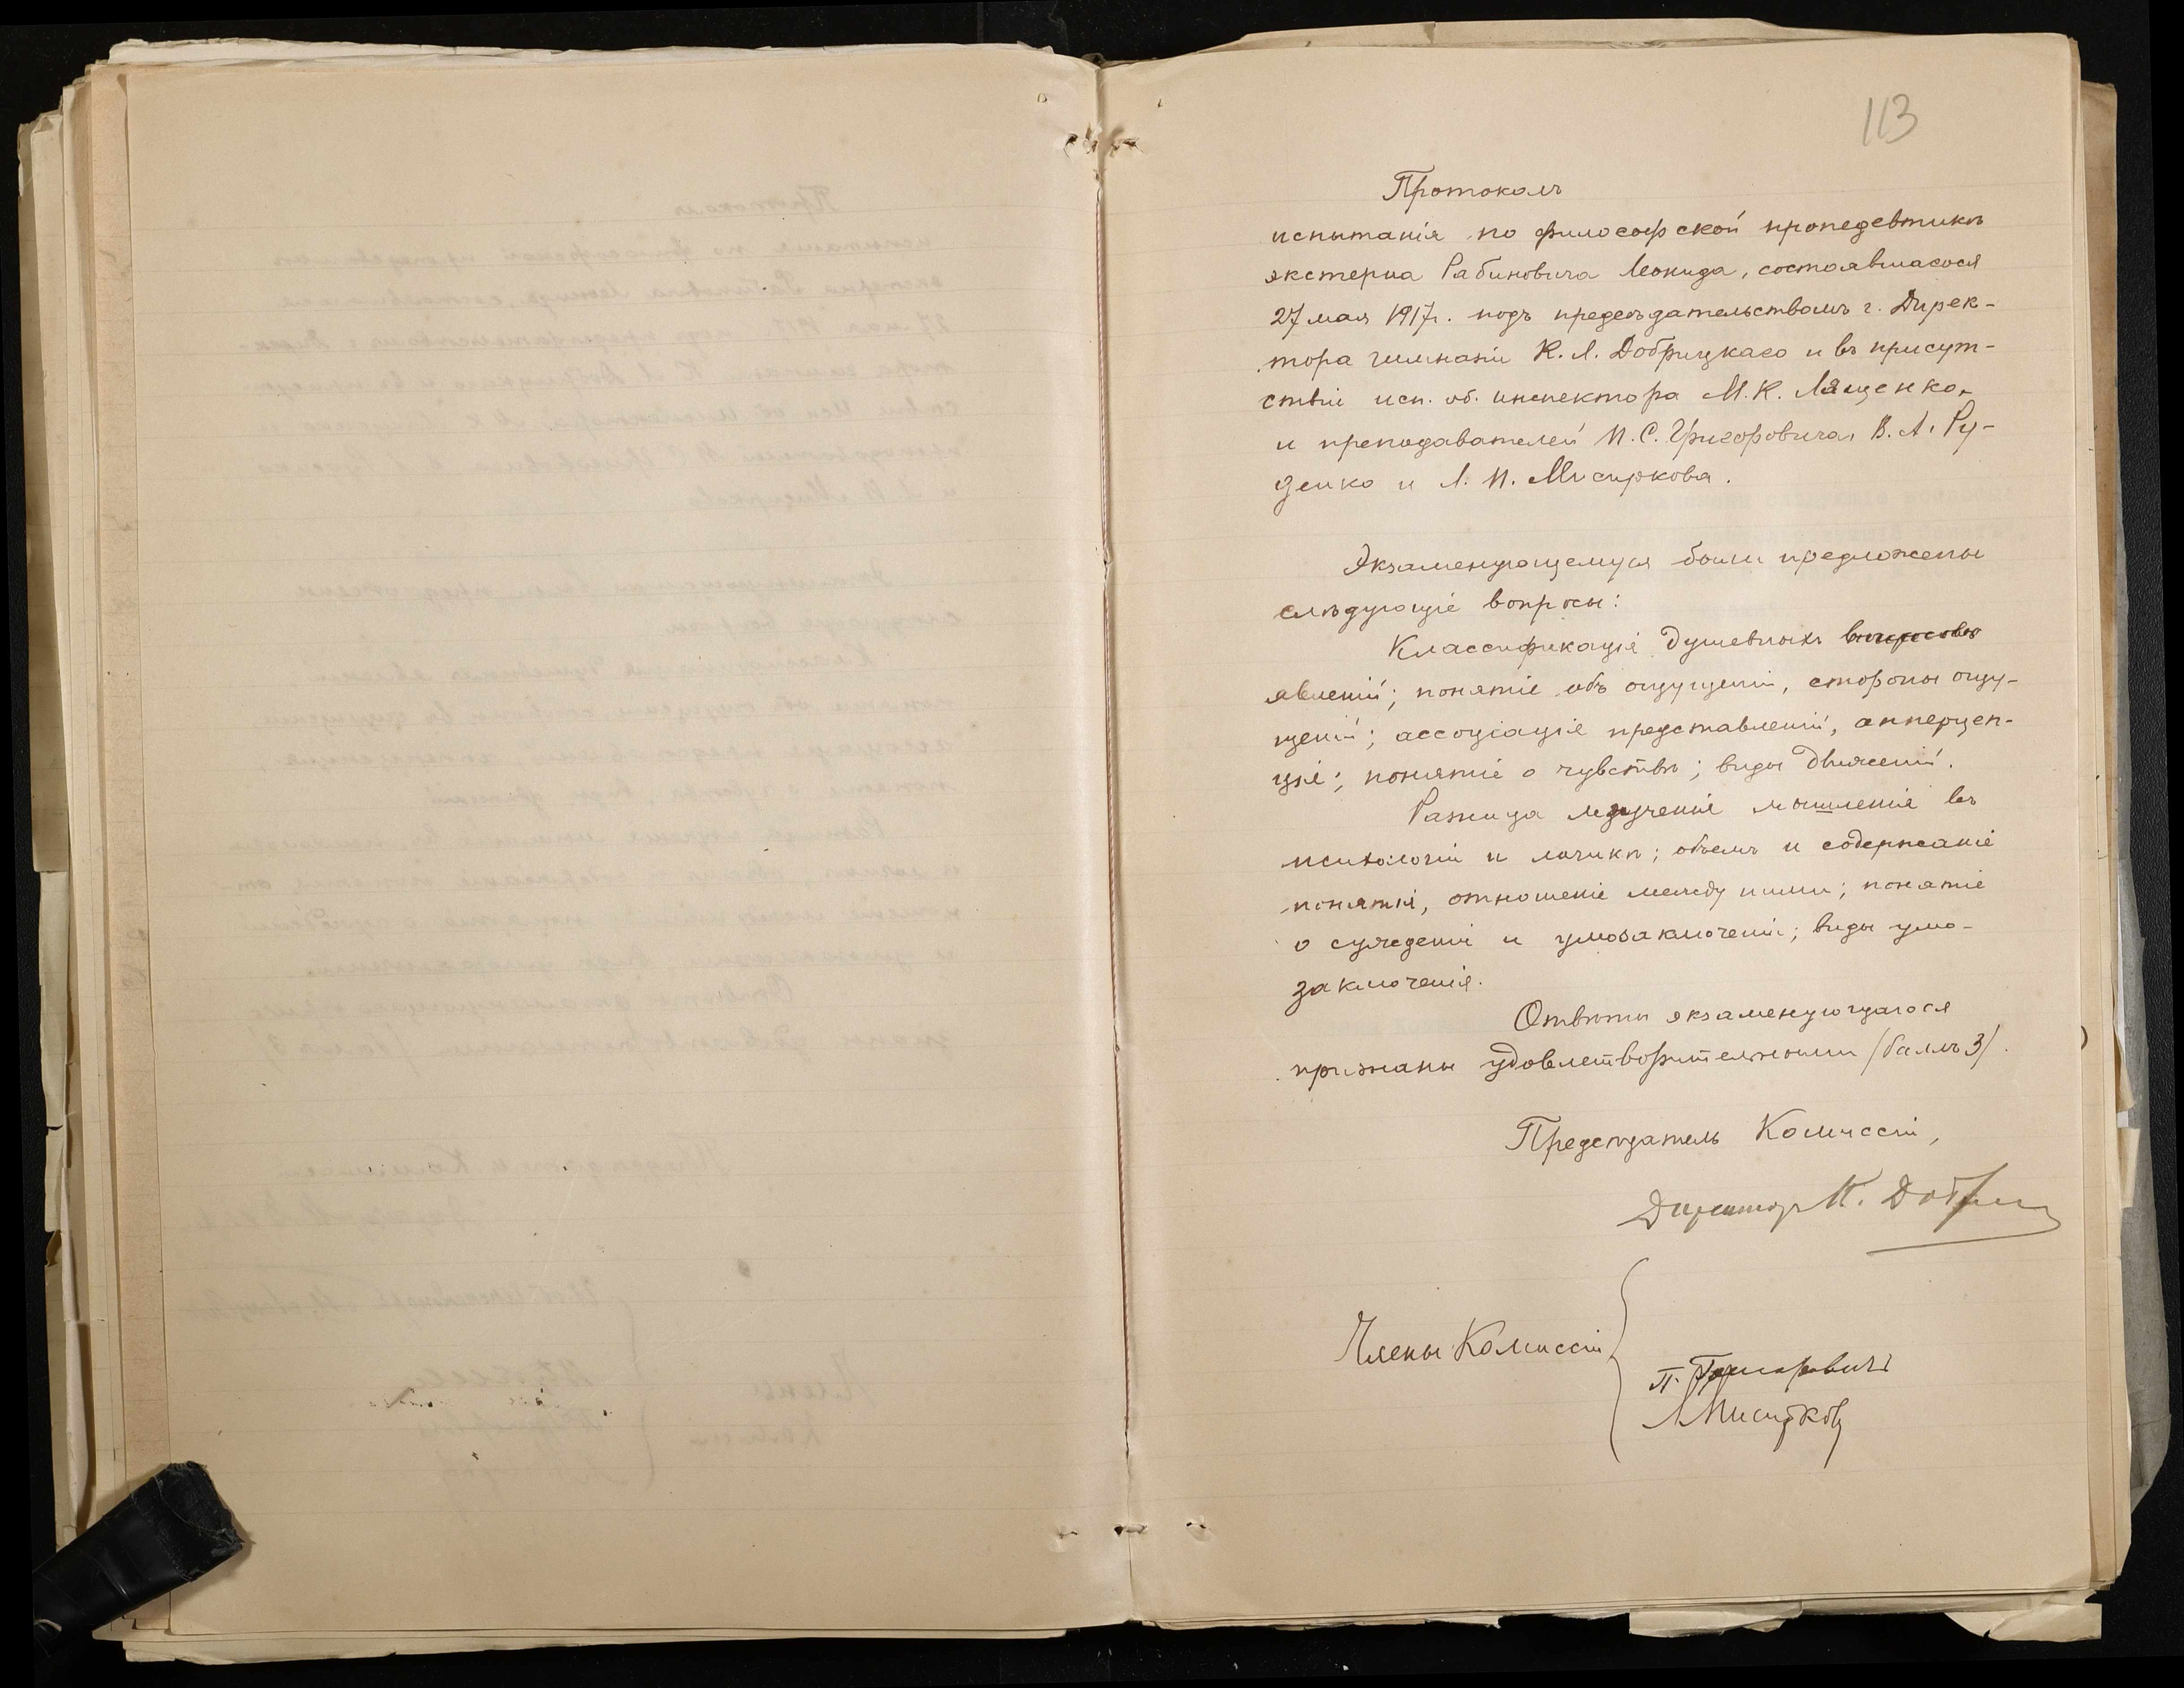 113
Протоколъ
испытанія по философской пропедевтикѣ
экстерна Рабиновича Леонида, состоявшагося
27 мая 1917 г. подъ предсѣдательствомъ г. Дирек-
тора гимназіи К. Л. Добрицкаго и въ присут-
ствіи исп. об. инспектора М. К. Лященко,
и преподавателей П. С. Григоровича, В. А. Ру-
денко и Л. П. Мисиркова.
Экзаменующемуся были предложены
слѣдующіе вопросы:
Классификація душевныхъ вопросовъ
явленій; понятіе объ ощущеніи, стороны ощу-
щеній; ассоціація представленій, апперцеп-
ція; понятіе о чувствѣ; виды движеній.
Разница изученія мышленія въ
психологіи и логикѣ; объемъ и содержаніе
понятія, отношеніе между ними; понятіе
о сужденіи и умозаключеніи; виды умо-
заключенія.
Отвѣты экзаменующагося
признаны удовлетворительными (баллъ 3).
Предсѣдатель Комиссіи,
Директоръ К.
Члены Комиссіи
П. Григоровичъ
Л Мисирковъ